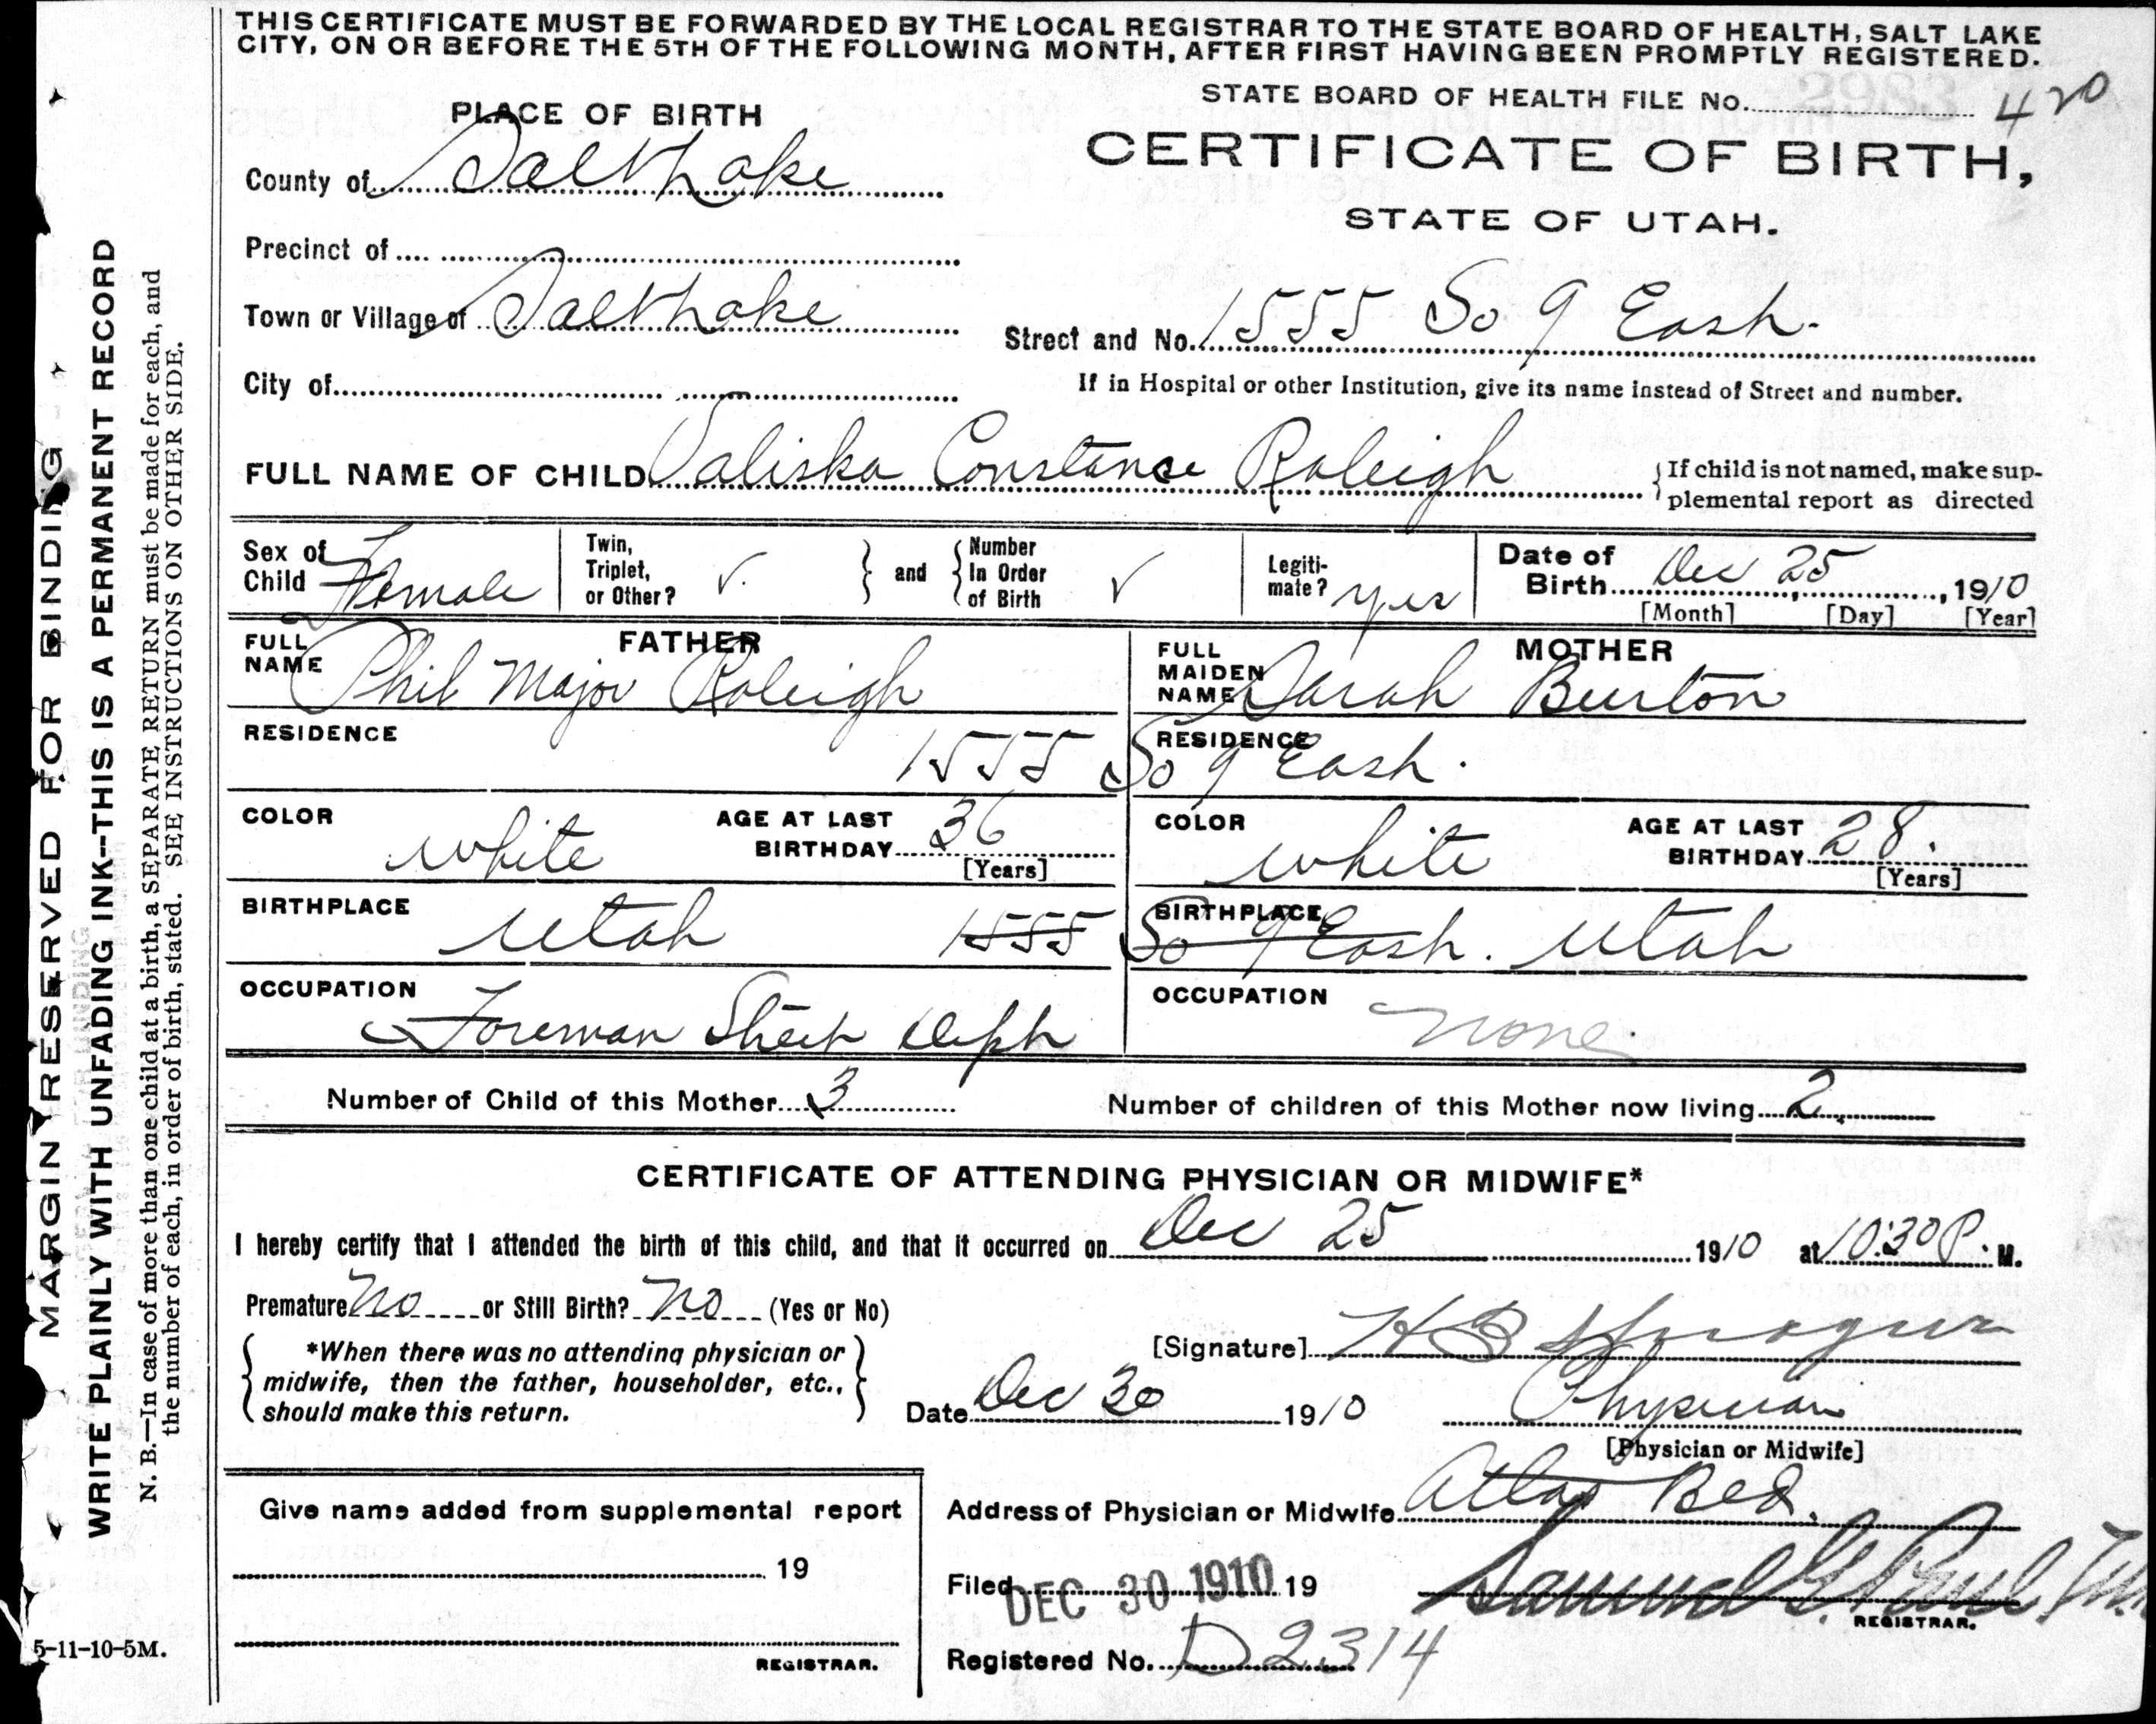 THIS CERTIFICATE MUST BE FORWARDED BY THE LOCAL REGISTRAR TO THE STATE BOARD OF HEALTH, SALT LAKE
CITY, ON OR BEFORE THE 5TH OF THE FOLLOWING MONTH, AFTER FIRST HAVING BEEN PROMPTLY REGISTERED.
STATE BOARD OF HEALTH FILE No. 2983 420
PLACE OF BIRTH
CERTIFICATE OF BIRTH,
STATE OF UTAH.
County of Salt Lake
Precinct of
Town or Village of Salt Lake
Street and No. 1555 So 9 East.
City of
If in Hospital or other Institution, give its name instead of Street and number.
FULL NAME OF CHILD Valiska Constance Raleigh
If child is not named, make sup-
plemental report as directed
Sex of Child Female
Twin, Triplet, or Other? ✓
and
Number In Order of Birth ✓
Legiti-mate? yes
Date of Birth Dec 25, 1910
[Month] [Day] [Year]
FATHER
FULL NAME Phil Major Raleigh
MOTHER
FULL MAIDEN NAME Sarah Burton
RESIDENCE 1555 So 9 East.
RESIDENCE
COLOR white
AGE AT LAST BIRTHDAY 36
[Years]
COLOR white
AGE AT LAST BIRTHDAY 28.
[Years]
BIRTHPLACE Utah
1555 So 9 East.
BIRTHPLACE Utah
OCCUPATION Foreman Street Dept
OCCUPATION none
Number of Child of this Mother 3
Number of children of this Mother now living 2
CERTIFICATE OF ATTENDING PHYSICIAN OR MIDWIFE*
I hereby certify that I attended the birth of this child, and that it occurred on Dec 25 1910 at 10:30 P. M.
Premature no or Still Birth? no (Yes or No)
*When there was no attending physician or
midwife, then the father, householder, etc.,
should make this return.
[Signature] H B Sprague
Date Dec 30 1910
Physician
[Physician or Midwife]
Address of Physician or Midwife Atlas Blk.
Give name added from supplemental report
19
REGISTRAR.
Filed DEC 30 1910 19
Samuel G. Paul
REGISTRAR.
Registered No. D2314
MARGIN RESERVED FOR BINDING
WRITE PLAINLY WITH UNFADING INK--THIS IS A PERMANENT RECORD
N. B.—In case of more than one child at a birth, a SEPARATE RETURN must be made for each, and
the number of each, in order of birth, stated. SEE INSTRUCTIONS ON OTHER SIDE.
5-11-10-5M.